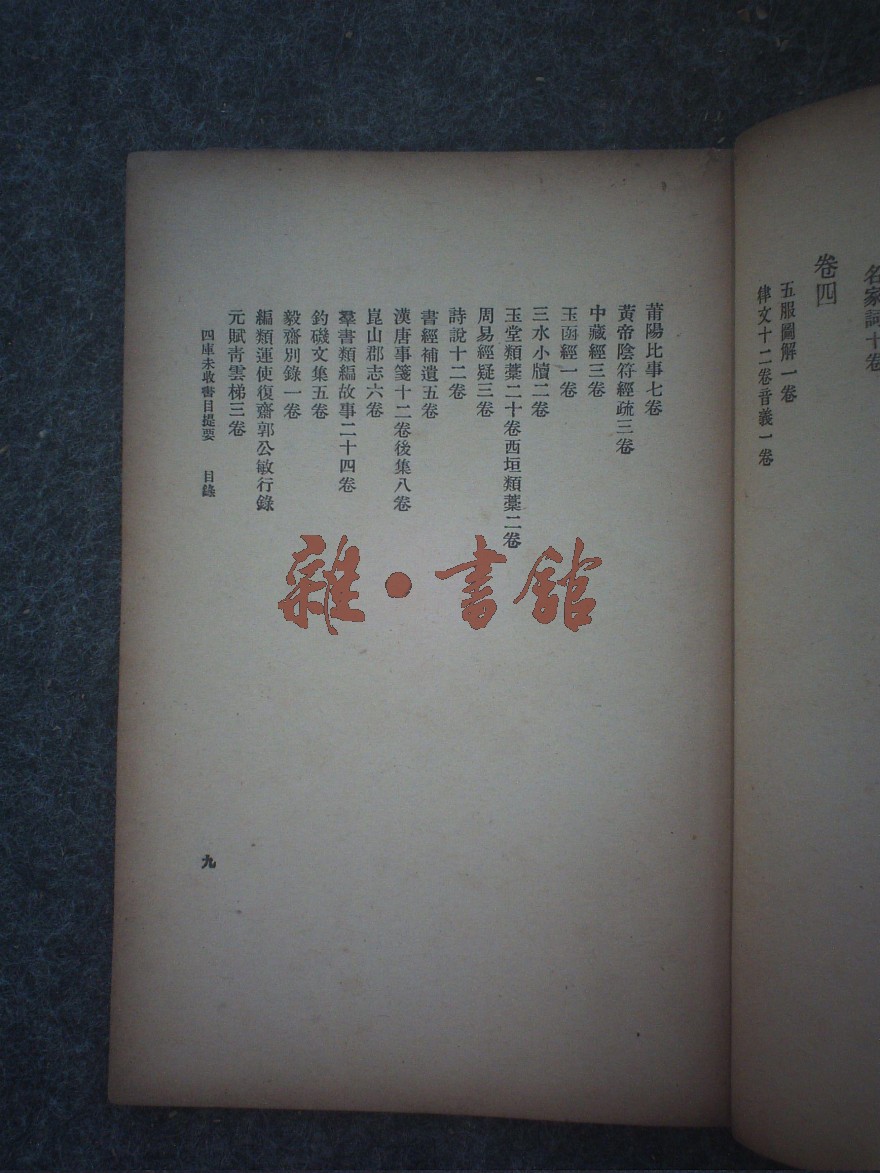 名家詞十卷
卷四
五服圖解一卷
律文十二卷音義一卷
莆陽比事七卷
黃帝陰符經疏三卷
中藏經三卷
玉函經一卷
三水小牘二卷
玉堂類藳二十卷西垣類藳二卷
周易經疑三卷
詩說十二卷
書經補遺五卷
漢唐事箋十二卷後集八卷
崑山郡志六卷
羣書類編故事二十四卷
釣磯文集五卷
毅齋別錄一卷
編類運使復齋郭公敏行錄
元賦青雲梯三卷
四庫未收書目提要 目錄
九
雜•書館